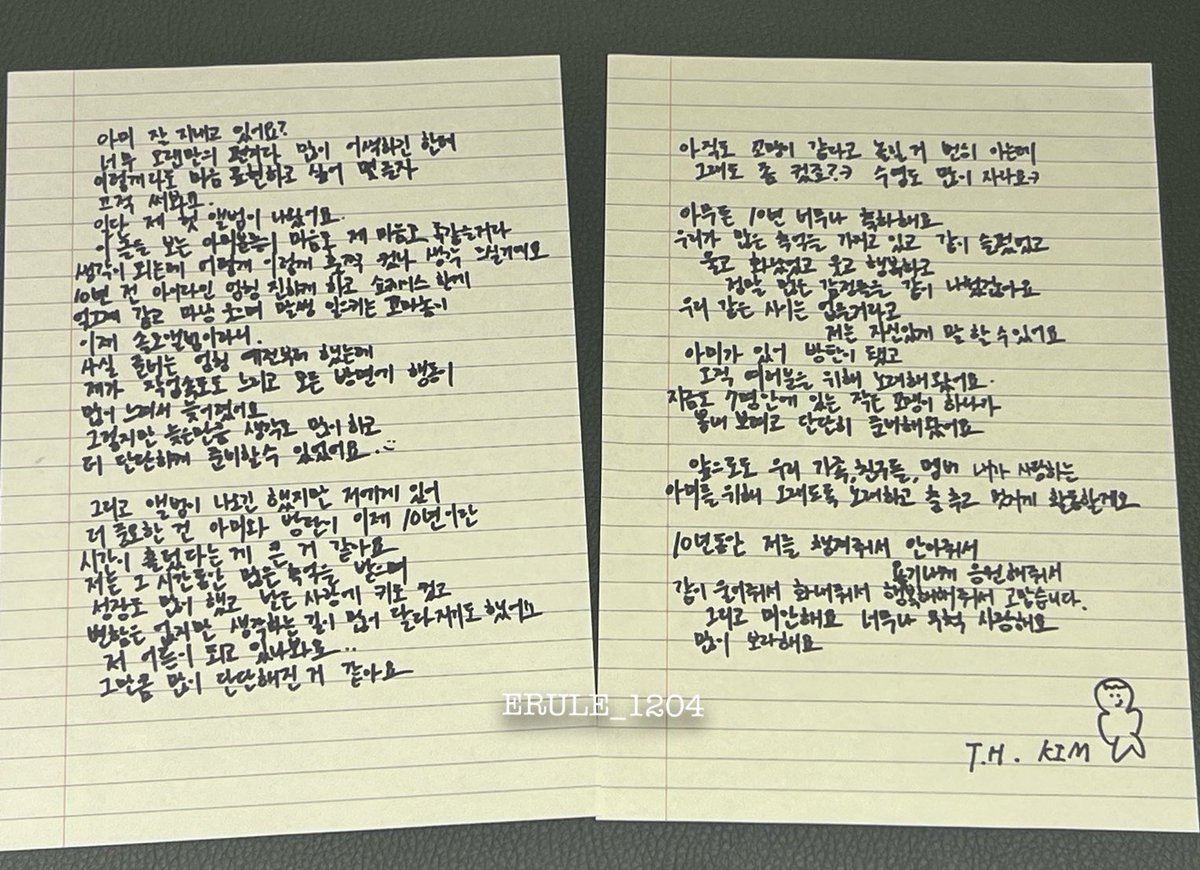 아미 잘 지내고 있어요?
너무 오랜만의 편지다 많이 어색하긴 한데
이렇게라도 마음 표현하고 싶어 몇글자
끄적 써봐요.
일단 제 첫 앨범이 나왔어요.
이 글을 보는 아미분들의 마음도 제 마음도 똑같을거라
생각이 되는데 어떻게 이렇게 훌쩍 컸나 생각 드실거예요
10년 전 아이라인 엄청 진하게 하고 쇼케이스 함께
엊그제 같고 마냥 웃으며 말썽 일으키는 꼬마놈이
이제 솔로앨범이라니.
사실 준비는 엄청 예전부터 했는데
제가 작업속도도 느리고 모든 방면에 행동이
많이 느려서 늦어졌어요
그렇지만 늦은만큼 생각도 많이 하고
더 단단하게 준비할 수 있었어요..
그리고 앨범이 나오긴 했지만 저에게 있어
더 중요한 건 아미와 방탄이 이제 10년이란
시간이 흘렀다는 게 큰 거 같아요
저는 그 시간동안 많은 축복을 받으며
성장도 많이 했고 받은 사랑에 키도 컸고
변함은 없지만 생각하는 깊이 많이 달라지기도 했어요
저 어른이 되고 있나봐요..
그만큼 많이 단단해진 거 같아요
아직도 꼬맹이 같다고 놀릴 거 뻔히 아는데
그래도 좀 컸죠?ㅋ 수염도 많이 자라요ㅋ
아무튼 10년 너무나 축하해요
우리가 많은 추억을 가지고 있고 같이 슬펐었고
울고 화났었고 웃고 행복하고
정말 많은 감정들을 같이 나눴잖아요
우리 같은 사이는 없을거라고
저는 자신있게 말 할 수 있어요
아미가 있어 방탄이 됐고
오직 여러분을 위해 노래해왔어요.
지금도 7명안에 있는 작은 꼬맹이 하나가
뽐내 보려고 단단히 준비해왔어요
앞으로도 우리 가족, 친구들, 멤버 내가 사랑하는
아미를 위해 오래도록 노래하고 춤 추고 멋지게 활동할게요
10년동안 저를 챙겨줘서 안아줘서
용기나게 응원해줘서
같이 울어줘서 화내줘서 행복해해줘서 고맙습니다.
그리고 미안해요 너무나 무척 사랑해요
많이 보라해요
T.H. KIM
ERULE_1204